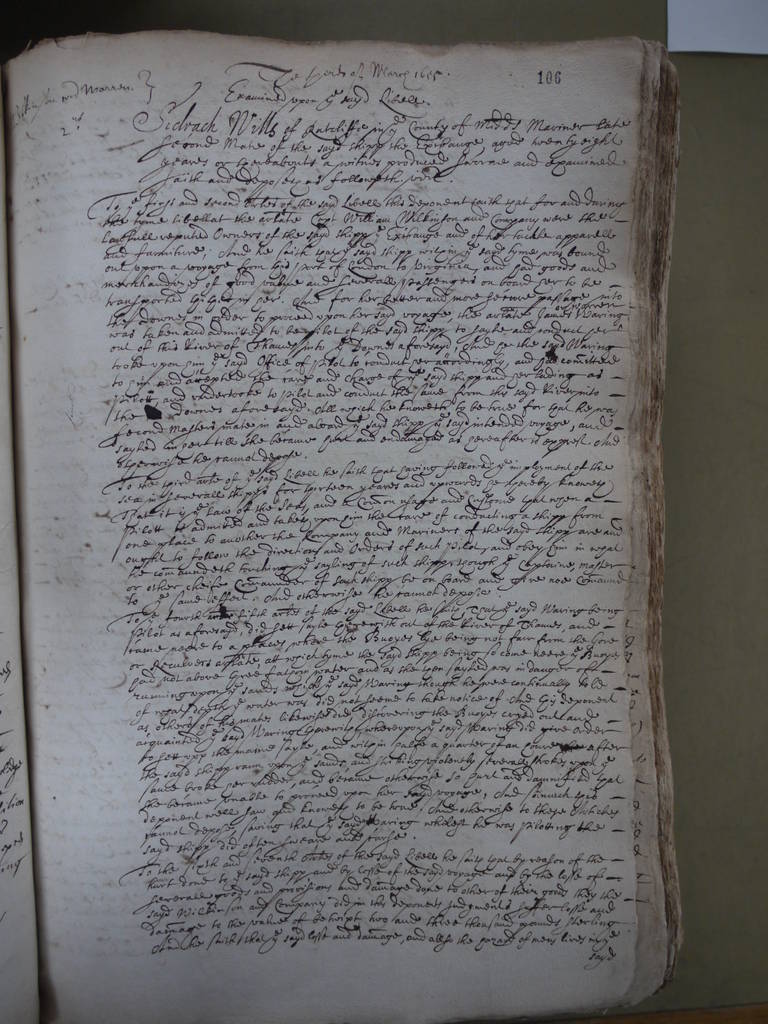 The third of March 1655.
106
Wilkinson and Warren.
Examined upon ye sayd Libell.
2us
Sidrach Wills of Ratcliffe in ye County of Midds Mariner late
second Mate of the sayd shipp the Exchange aged twenty eight
yeares or thereabouts a witnes produced sworne and examined
saith and deposeth as followeth vizt.
To ye first and second Arles of the said Libell this deponent saith that for and during
the tyme libellat the arlate Capt William Wilkinson and Company were the
lawfull reputed Owners of the sayd shipp ye Exchange and of her tackle apparell
and furniture, And he saith that ye sayd shipp within ye sayd tyme was bound
out upon a voyage from this port of London to Virginia, and had goods and
merchandizes of good value and severall passengers on board her to be
transported thither in her. And for her better and more secure passage into
the Downes in order to proceed upon her said voyage the arlate James Waring
was taken and admitted to be pilot of the said shipp to sayle and conduct her
out of this River of Thames into ye Downes aforesayd, And he the sayd Waring
tooke upon him ye sayd Office of Pilot to conduct her accordingly, and had comitted
to him and accepted the care and charge of ye sayd shipp and her lading as
Pilott, and undertooke to pilot and conduct the same from the said River into
the Downes aforesayd. All which he knoweth to be true for that he was
second Masters mate in and aboard ye sayd shipp ye sayd intended voyage, and
sayled in her till she became hurt and endamaged as hereafter is exprest. And
otherwise he cannot depose.
To the third arle of ye said Libell he saith that having followed ye imployment of the
sea in severall shipps for thirteen yeares and upwards he thereby knoweth
That it is ye law of the seas, and a Common usage and Custome that when a
Pilott is admitted and takes upon him the care of conducting a shipp from
one place to another the Company and Mariners of the said shipp are and
ought to follow the directions and Orders of such Pilot, and obey him in what
he commandeth touching ye sayling of such shipp though ye Captaine, master
or other cheife Comander of such shipp be on board and give noe Comand
to ye same effect. And otherwise he cannot depose.
To ye fourth and fifth arles of the sayd Libell he saith That ye said Waring being
Pilot as aforesayd, did sett sayle therewith out of the River of Thames, and
came neere to a place where the Buoyes lye being not farr from the
or Reculvers arlate, att which tyme the said shipp being so come neere ye Buoyes
had not above three fathom water and as she then sayled was in danger of
running upon ye sands which ye sayd Waring though he were continually to be
of what depth ye water was did not seeme to take notice of And this deponent
as others of the mates likewise did, discovering the Buoyes cryed out and
acquainted ye sayd Waring therewith, whereupon ye sayd Waring did give order
to sett upp the maine sayle, and within halfe a quarter of an houre after
the said shipp ran upon ye sands, and striking violently severall strokes upon ye
same broke her rudder, and became otherwise so hurt and damnified that
she became unable to proceed upon her sayd voyage, And somuch this
deponent well saw and knoweth to be true, And otherwise to these Articles
cannot depose, saving that ye sayd Waring whilest he was piloting the
said shipp did often sweare and curse.
To the sixth and seventh arles of the said Libell he saith that by reason of the
hurt done to ye sayd shipp and by losse of the sayd voyage and by the losse of
severall goods and provisions and damage done to other of their goods they the
sayd Wilkinson and Company did in this deponents Judgment suffer losse and
damage to the value of betwixt two and three thousand pounds sterling
And he saith that ye sayd losse and damage, and allso the hazard of mens lives in ye
sayd